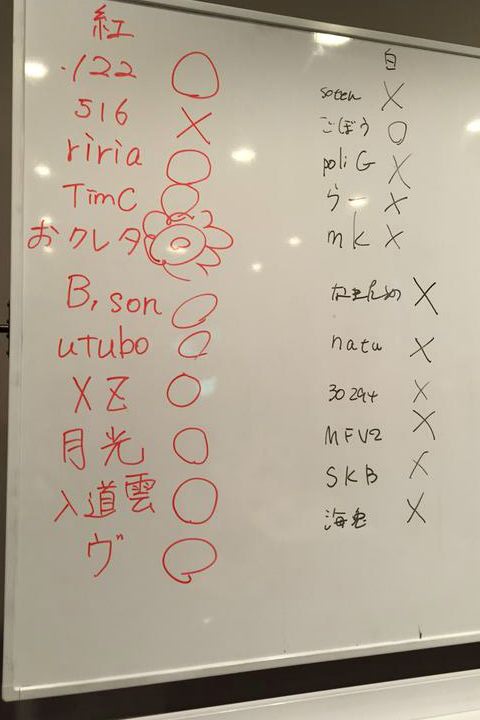 紅
.122 ○
516 ×
riria ○
TimC ○
おクレタ ○
B,son ○
utubo ○
XZ ○
月光 ○
入道雲 ○
ヴ ○
白
soten ×
ごぼう ○
poliG ×
らー ×
mk ×
なまんめ ×
natu ×
30294 ×
MFV2 ×
SKB ×
海兎 ×